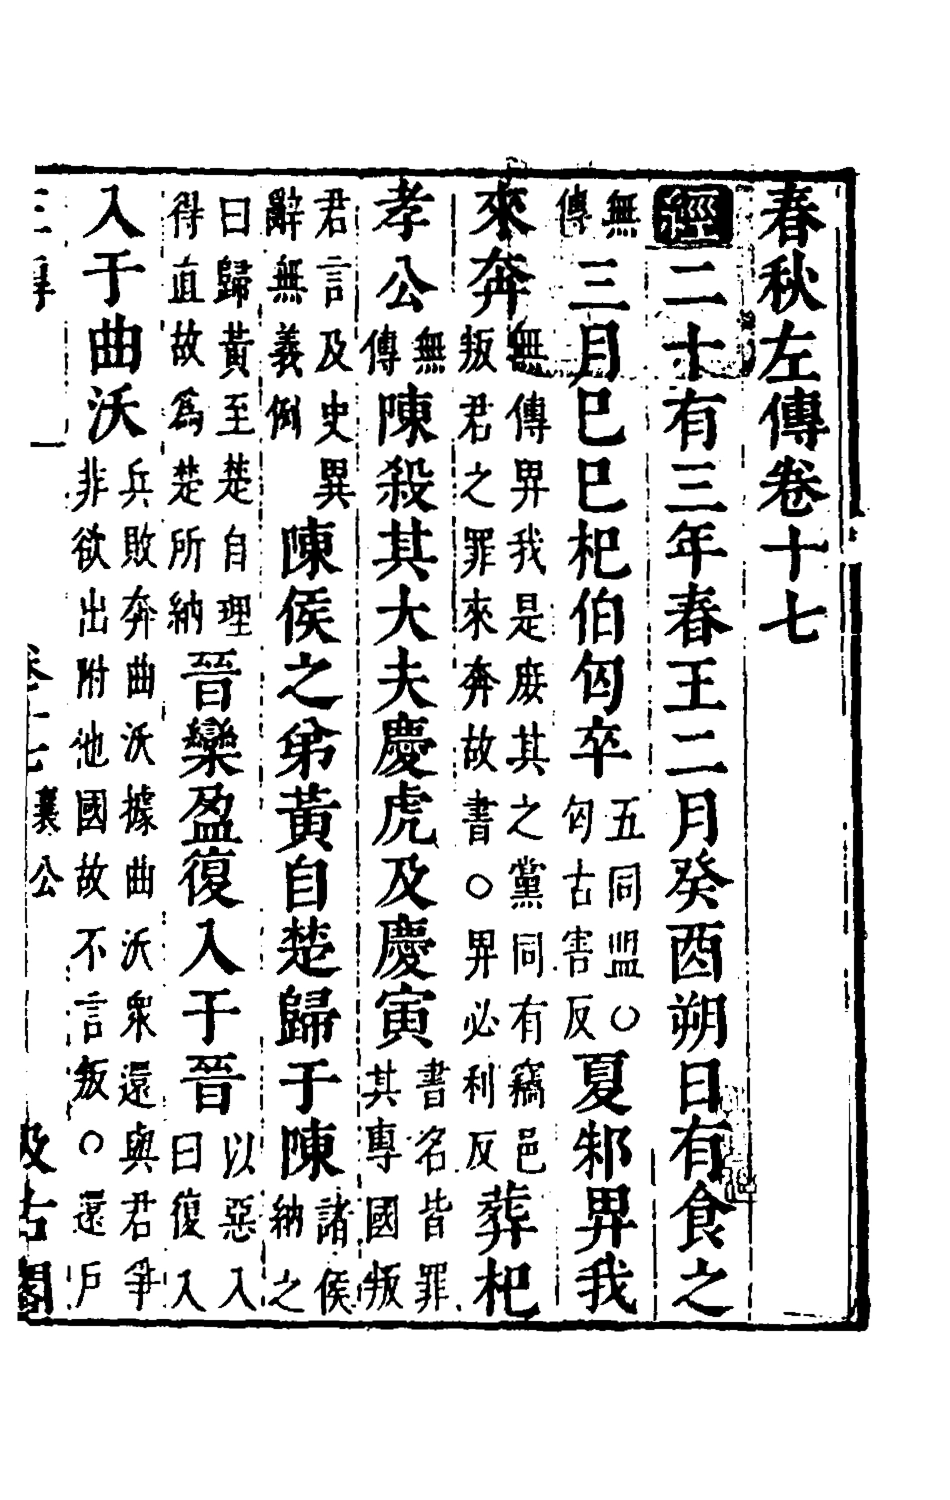 春秋左傳卷十七
經二十有三年春王二月癸酉朔日有食之
無傳三月巳巳杞伯匄卒五同盟○匄古害反夏邾畀我
來奔無傳畀我是庶其之黨同有竊邑叛君之罪來奔故書○畀必利反葬杞
孝公無傳陳殺其大夫慶虎及慶寅書名皆罪其專國叛
君言及史異辭無義例陳侯之弟黃自楚歸于陳諸侯納之
曰歸黃至楚自理得直故爲楚所納晉欒盈復入于晉以惡入曰復入
入于曲沃兵敗奔曲沃據曲沃衆還與君爭非欲出附他國故不言叛○還戶
一 卷十七 襄公 汲古閣